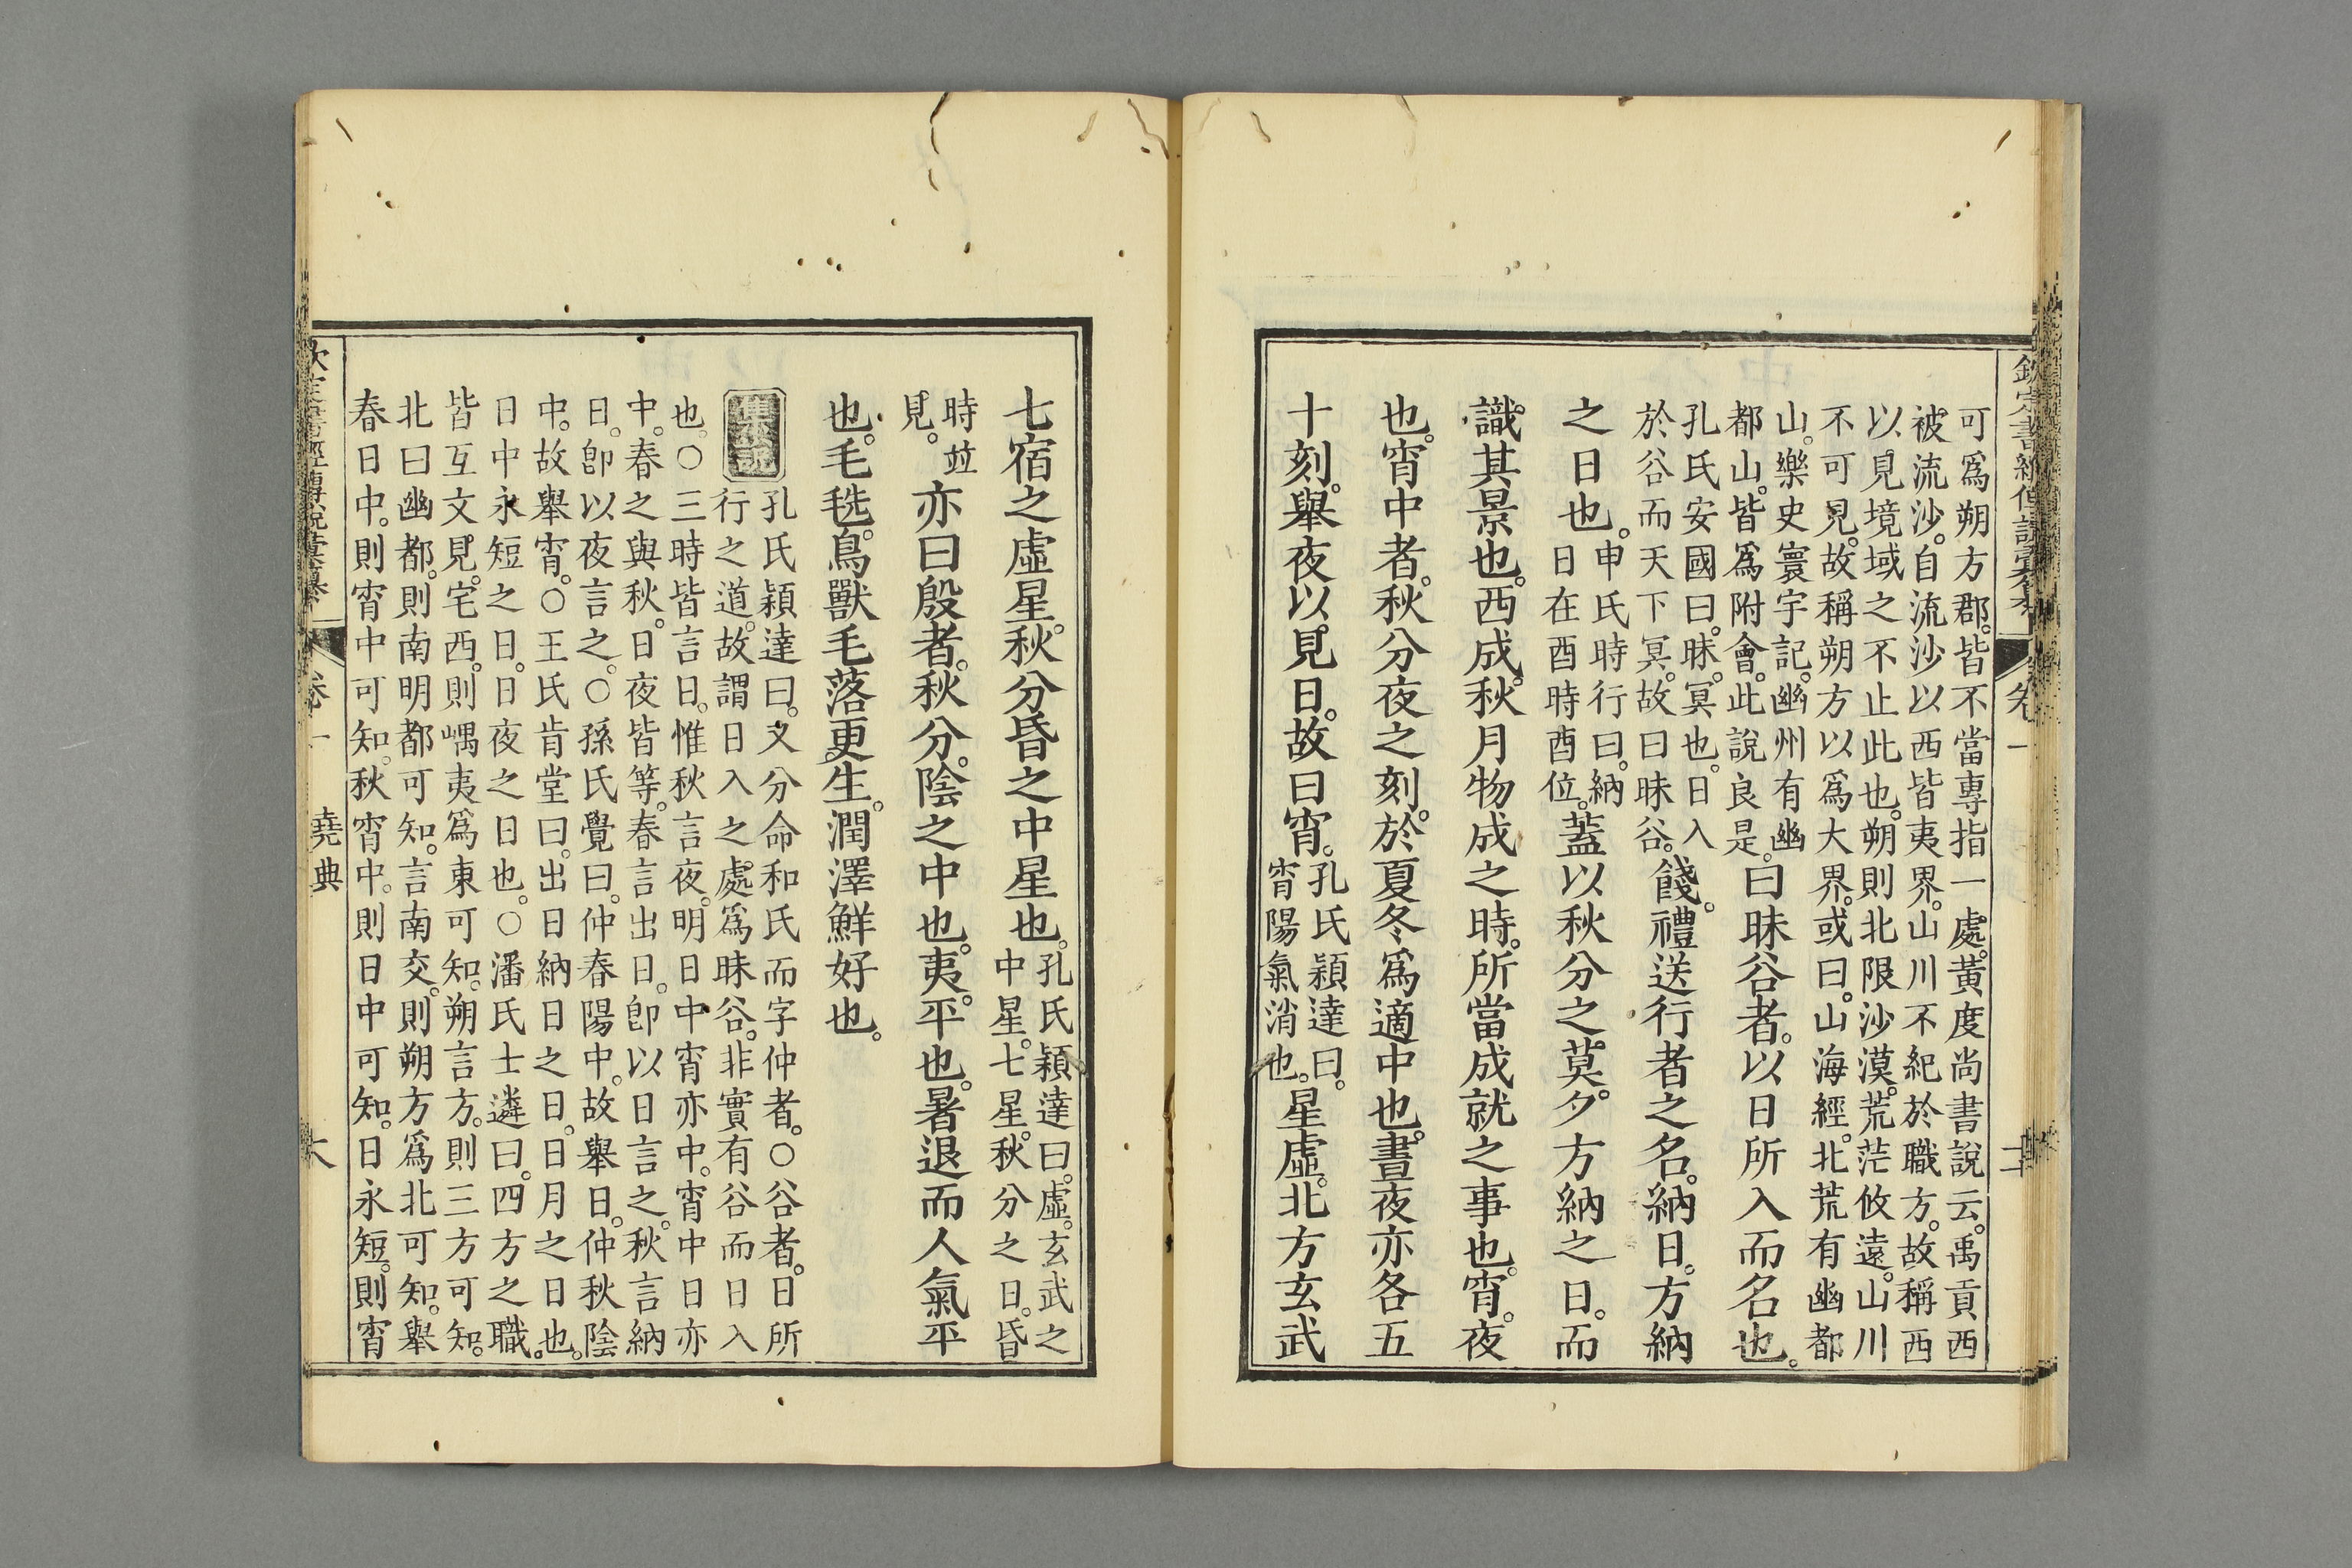 欽定書經傳說彙纂
卷一
可爲朔方郡。皆不當專指一處。黃度尚書說云。禹貢西
被流沙。自流沙以西皆夷界。山川不紀於職方。故稱西
以見境域之不止此也。朔則北限沙漠。荒茫攸遠。山川
不可見。故稱朔方以爲大界。或曰。山海經。北荒有幽都
山。樂史寰宇記。幽州有幽
都山。皆爲附會。此說良是。曰昧谷者。以日所入而名也。
孔氏安國曰。昧。冥也。日入
於谷而天下冥。故曰昧谷。餞。禮送行者之名。納日。方納
之日也。申氏時行曰。納
日在酉時酉位。蓋以秋分之。莫夕。方納之日。而
識其景也。西成。秋月物成之時。所當成就之事也。宵。夜
也。宵中者。秋分夜之刻。於夏冬爲適中也。晝夜亦各五
十刻。舉夜以見日。故曰宵。孔氏穎達曰。
宵陽氣消也。星虛。北方玄武
七宿之虛星。秋分昏之中星也。孔氏穎達曰。虛。玄武之
中星。七星。秋分之日。昏
時並
見。亦曰殷者。秋分。陰之中也。夷。平也。暑退而人氣平
也。毛毨。鳥獸毛落更生。潤澤鮮好也。
集說
孔氏穎達曰。又分命和氏而字仲者。○谷者。日所
行之道。故謂日入之處爲昧谷。非實有谷而日入
也。○三時皆言日。惟秋言夜。明日中宵亦中。宵中日亦
中。春之與秋。日夜皆等。春言出日。卽以日言之。秋言納
日。卽以夜言之。○孫氏覺曰。仲春陽中。故舉日。仲秋陰
中。故舉宵。○王氏肯堂曰。出日納日之日。日月之日也。
日中永短之日。日夜之日也。○潘氏士遴曰。四方之職。
皆互文見。宅西。則嵎夷爲東可知。朔言方。則三方可知。
北曰幽都。則南明都可知。言南交。則朔方爲北可知。舉
春日中。則宵中可知。秋宵中。則日中可知。日永短。則宵
欽定書經傳說彙纂
卷一
堯典